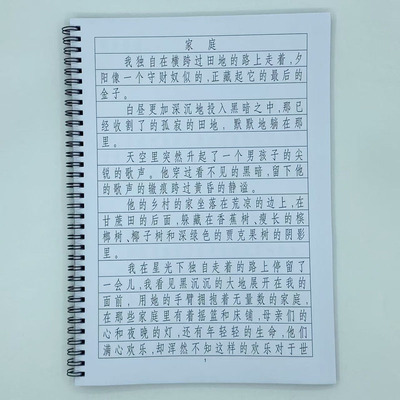 家庭
我独自在横跨过田地的路上走着,夕
阳像一个守财奴似的,正藏起它的最后的
金子。
白昼更加深沉地投入黑暗之中,那已
经收割了的孤寂的田地,默默地躺在那
里。
天空里突然升起了一个男孩子的尖
锐的歌声。他穿过看不见的黑暗,留下他
的歌声的辙痕跨过黄昏的静谧。
他的乡村的家坐落在荒凉的边上,在
甘蔗田的后面,躲藏在香蕉树、瘦长的槟
榔树、椰子树和深绿色的贾克果树的阴影
里。
我在星光下独自走着的路上停留了
一会儿,我看见黑沉沉的大地展开在我的
面前,用她的手臂拥抱着无量数的家庭,
在那些家庭里有着摇篮和床铺,母亲们的
心和夜晚的灯,还有年轻轻的生命,他们
满心欢乐,却浑然不知这样的欢乐对于世
1